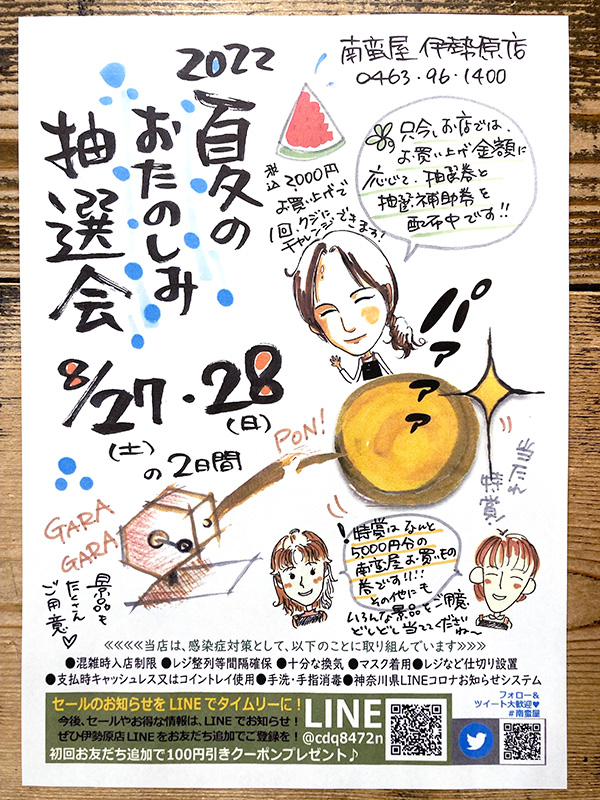 南蛮屋 伊勢原店
0463・96・1400
2022
夏の
おたのしみ
抽選会
税込2,000円
お買い上げで
1回、クジに
チャレンジできます!
只今、お店では、
お買い上げ金額に
応じて、抽選券と
抽選補助券を
配布中です!!
8/27・28
(土)
(日)
の2日間
パァァァ
PON!
GARA
GARA
当たれ
特賞!
景品も
たくさん
ご用意♡
特賞はなんと
5000円分の
南蛮屋お買いもの
券です!!!!
その他にも
いろんな景品をご用意
どしどし当ててくださいね〜
≪≪≪当店は、感染症対策として、以下のことに取り組んでいます≫≫≫
●混雑時入店制限 ●レジ整列等間隔確保 ●十分な換気 ●マスク着用●レジなど仕切り設置
●支払時キャッシュレス又はコイントレイ使用●手洗・手指消毒●神奈川県LINEコロナお知らせシステム
セールのお知らせを LINE でタイムリーに!
今後、セールやお得な情報は、LINE でお知らせ!
ぜひ伊勢原店 LINE をお友だち追加でご登録を!
初回お友だち追加で100円引きクーポンプレゼント♪
LINE
@cdq8472n
フォロー&
ツイート大歓迎♥
#南蛮屋